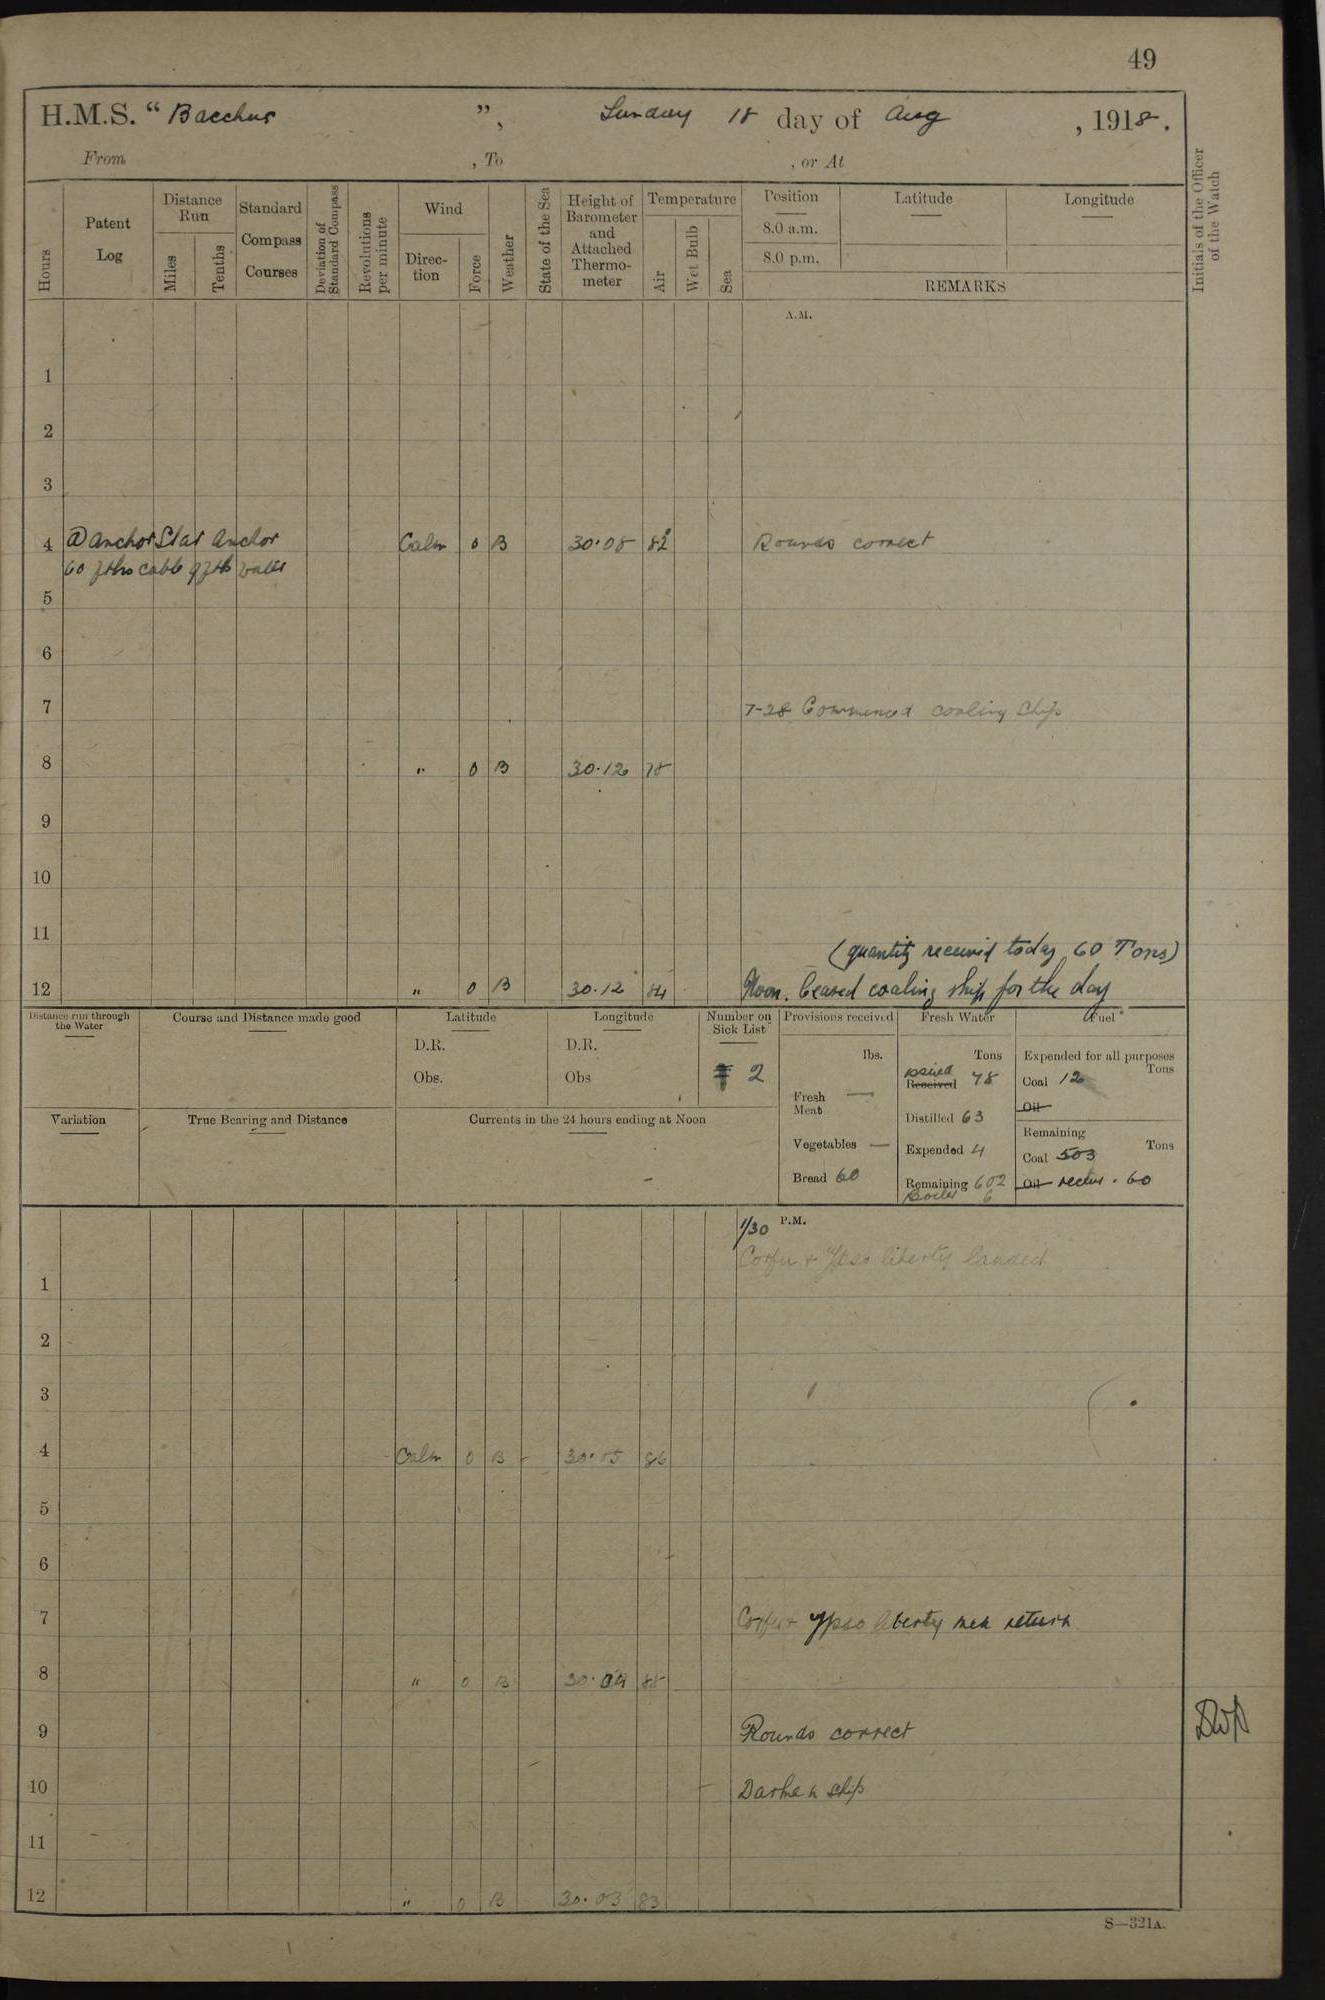 49
H.M.S. “ Bacchus ”, Sunday 18 day of Aug , 1918.
From , To , or At
Hours
Patent Log
Distance Run
Miles
Tenths
Standard Compass Courses
Deviation of Standard Compass
Revolutions per minute
Wind
Direction
Force
Weather
State of the Sea
Height of Barometer and Attached Thermometer
Temperature
Air
Wet Bulb
Sea
Position
8.0 a.m.
8.0 p.m.
Latitude
Longitude
REMARKS
Initials of the Officer of the Watch
A.M.
1
2
3
4 @ anchor Star anchor Calm 0 B 30.08 82 Rounds correct
60 fths cable 9 fth water
5
6
7 7-28 Commenced coaling ship
8 " 0 B 30.12 78
9
10
11 (quantity received today 60 Tons)
12 " 0 B 30.12 84 Noon. Ceased coaling ship for the day
Distance run through the Water
Course and Distance made good
Latitude
D.R.
Obs.
Longitude
D.R.
Obs
Number on Sick List
2
Provisions received
lbs.
Fresh Meat —
Vegetables —
Bread 60
Fresh Water
Tons
issued
Received 48
Distilled 63
Expended 4
Remaining 602
Boiler 6
Fuel
Expended for all purposes
Tons
Coal 12
Oil
Remaining
Tons
Coal 503
Oil recvd . 60
Variation
True Bearing and Distance
Currents in the 24 hours ending at Noon
1/30 P.M.
Corfu + Ypso liberty landed
1
2
3
4 Calm 0 B 30.05 86
5
6
7 Corfu + Ypso liberty men return
8 " 0 B 30.04 85
9 Rounds correct
10 Darken ship
11
12 " 0 B 30.03 83
S—321A.